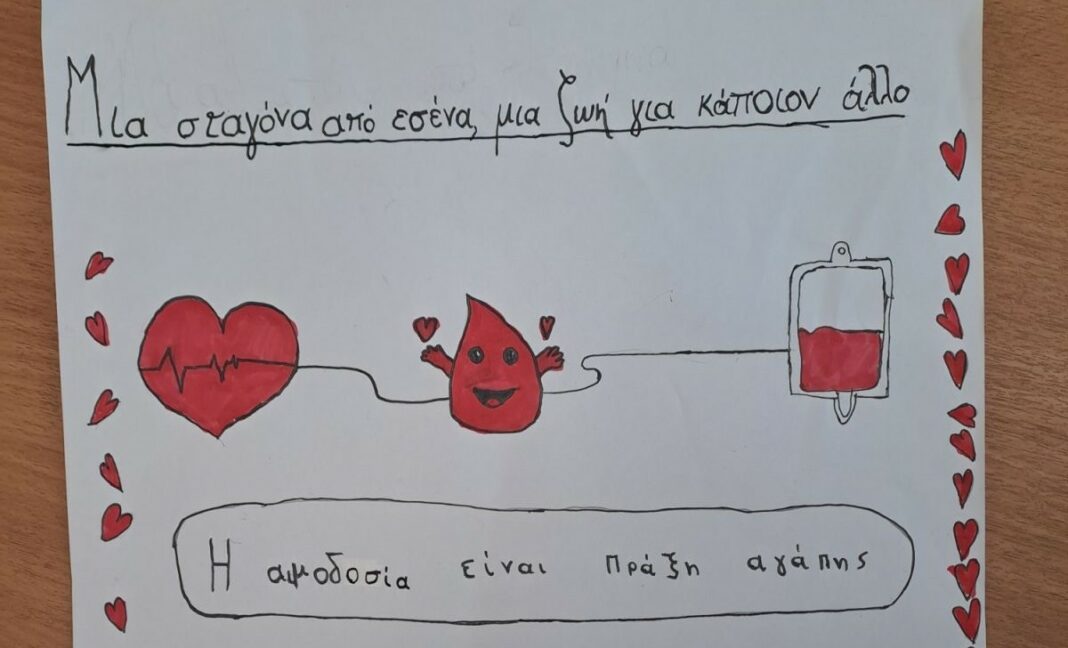 Μια σταγόνα από εσένα, μια ζωή για κάποιον άλλο
Η αιμοδοσία είναι πράξη αγάπης